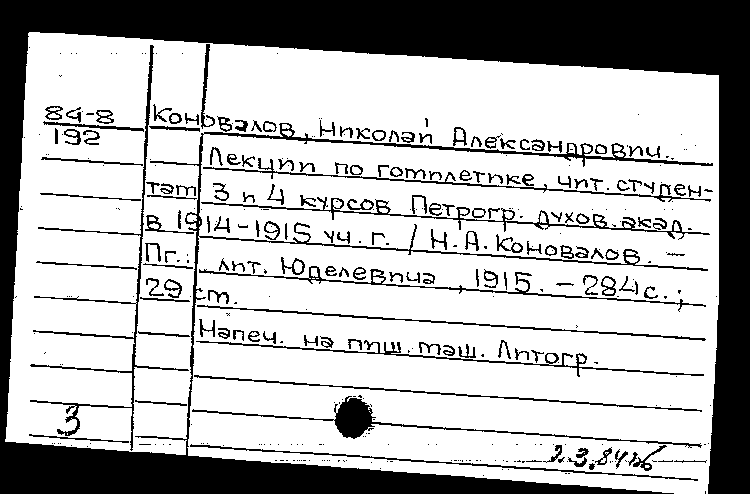 84-8 Коновалов, Николай Александрович.
192
Лекции по гомилетике, чит. студен-
там 3 и 4 курсов Петрогр. духов. акад.
в 1914-1915 уч. г. / Н.А. Коновалов. —
Пг.: лит. Юделевича, 1915. – 284 с.;
29 см.
Напеч. на пиш. маш. Литогр.
3